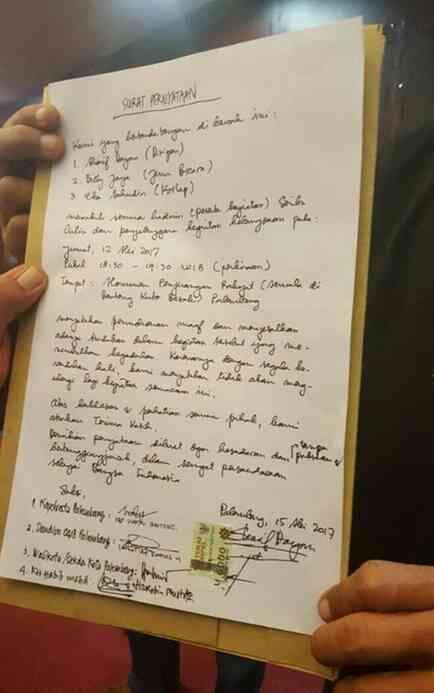 SURAT PERNYATAAN
Kami yang bertandatangan di bawah ini :
1. Bagus (Ditipan)
2. Jaya (Jemi Bicara)
3. Eka Sahudin (Korlap)
mewakili semua hadirin (peserta kegiatan) Serbu
Lilin dan penyelenggara kegiatan kebangsaan pada :
Jumat, 12 Mei 2017
Pukul 18:30 - 19:30 WIB (perkiraan)
Tempat : Monumen Perjuangan Rakyat (semula di
Benteng Kuto Besak) Palembang
menyatakan permohonan maaf dan menyesalkan
adanya tindakan dalam kegiatan tersebut yang me-
nimbulkan kegaduhan. Karenanya dengan segala ke-
rendahan hati, kami menyatakan tidak akan meng-
ulangi lagi kegiatan semacam ini.
Atas kebijakan & perhatian semua pihak, kami
aturkan Terima Kasih.
Demikian pernyataan dibuat dgn kesadaran dan tanpa paksaan &
bertanggungjawab, dalam semangat persaudaraan
sebagai Bangsa Indonesia
Saksi,
Palembang, 15 Mei 2017
1. Kapolresta Palembang :
2. Dandim 0418 Palembang :
3. Walikota /Sekda Kota Palembang :
4. KH Habib Mahdi
6000